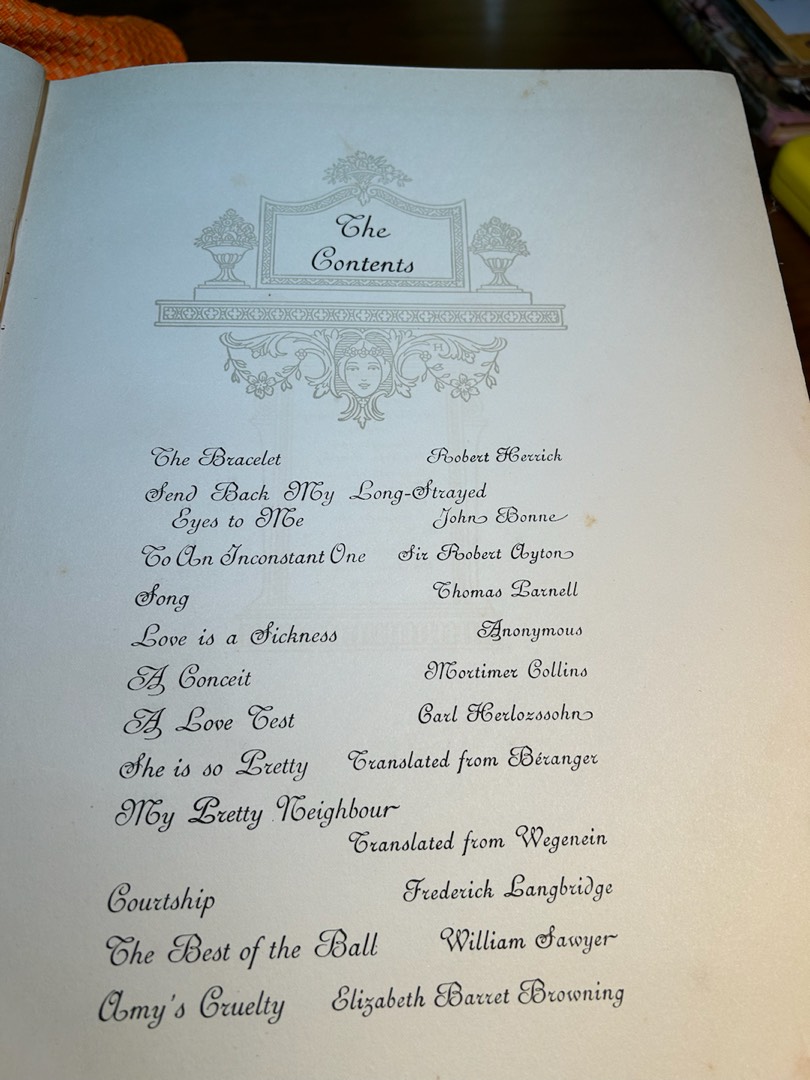 The
Contents
The Bracelet Robert Herrick
Send Back My Long-Strayed
Eyes to Me John Donne
To An Inconstant One Sir Robert Ayton
Song Thomas Parnell
Love is a Sickness Anonymous
A Conceit Mortimer Collins
A Love Test Carl Herlozssohn
She is so Pretty Translated from Béranger
My Pretty Neighbour
Translated from Wegenein
Courtship Frederick Langbridge
The Best of the Ball William Sawyer
Amy's Cruelty Elizabeth Barret Browning